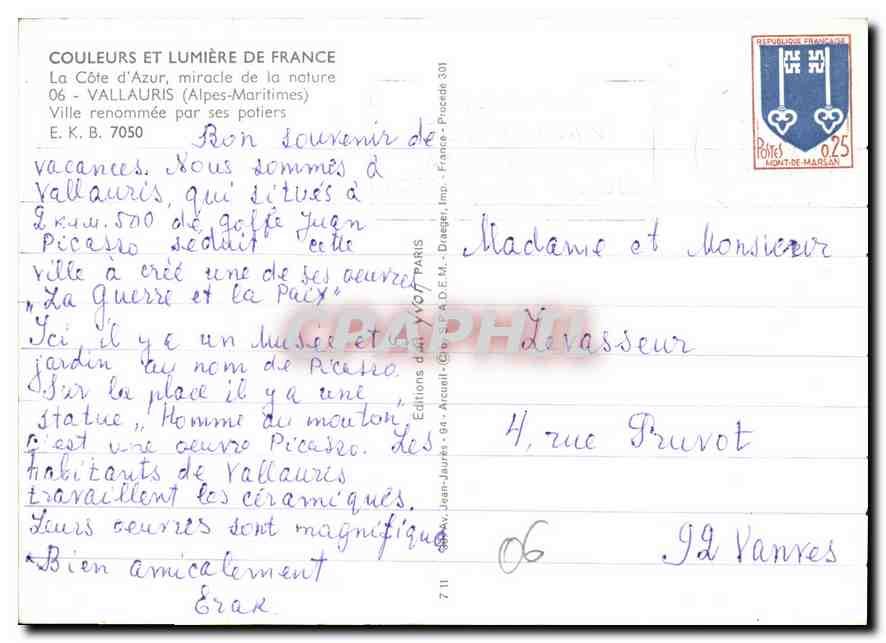 COULEURS ET LUMIÈRE DE FRANCE
La Côte d'Azur, miracle de la nature
06 - VALLAURIS (Alpes-Maritimes)
Ville renommée par ses potiers
E. K. B. 7050
Bon souvenir de
vacances. Nous sommes à
Vallauris, qui situés à
2 k.u.m. 500 de golfe Juan
Picasso séduit cette
ville à créé une de ses oeuvres
„La Guerre et la Paix"
Ici, il y a un Musée et
jardin au nom de Picasso.
Sur la place il y a une
statue „Homme au mouton,
c'est une oeuvre Picasso. Les
habitants de Vallauris
travaillent les céramiques.
Leurs oeuvres sont magnifique
Bien amicalement
Editions d'art Yvon PARIS
Av. Jean-Jaurès - 94 - Arcueil - © by S.P.A.D.E.M. - Draeger, Imp. - France - Procédé 301
7 11
REPUBLIQUE FRANÇAISE
POSTES 0,25
MONT-DE-MARSAN
Madame et Monsieur
Levasseur
4, rue Pruvot
92 Vanves
06
CPAPHIL